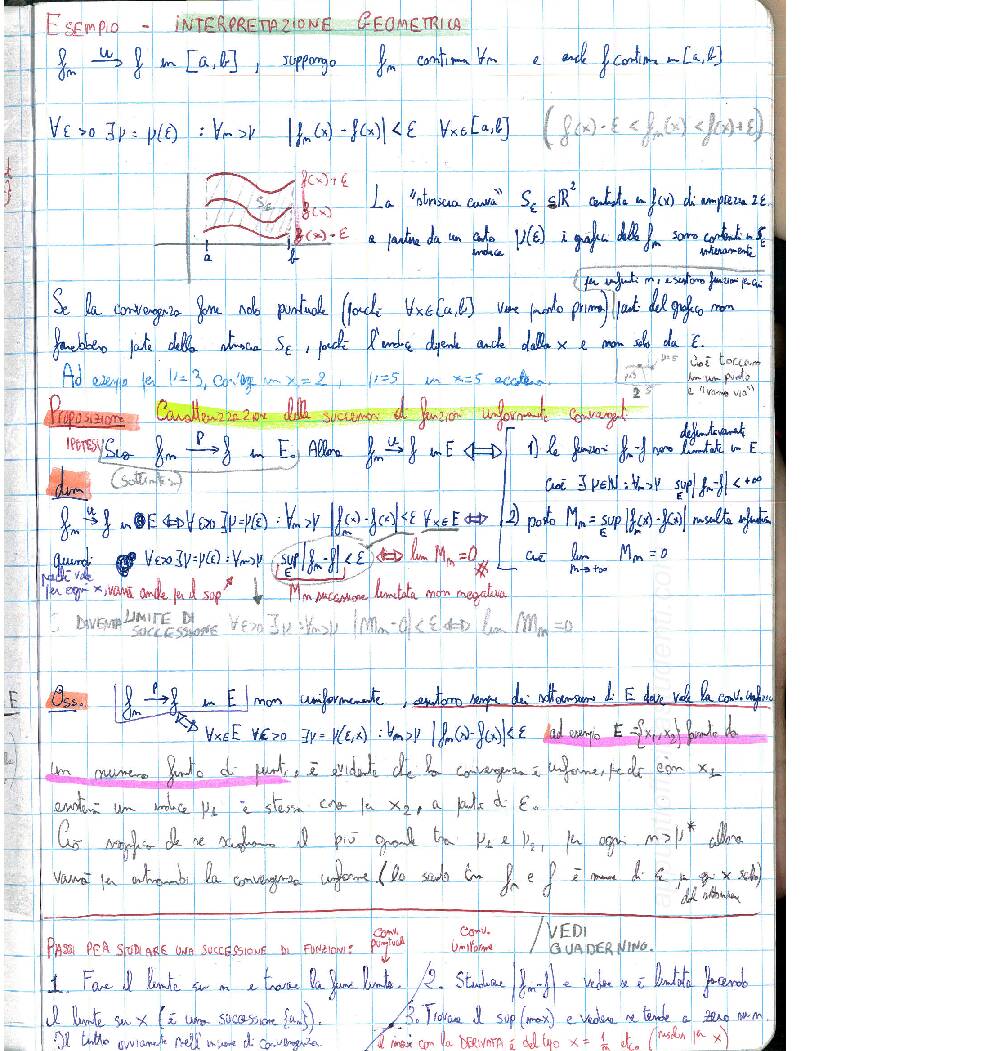 ESEMPIO - INTERPRETAZIONE GEOMETRICA
fₙ →ᵘ f in [a,b], suppongo fₙ continua ∀n e anche f continua in [a,b]
∀ε>0 ∃ν=ν(ε) : ∀n>ν |fₙ(x)-f(x)|<ε ∀x∈[a,b] (f(x)-ε < fₙ(x) < f(x)+ε)
f(x)+ε
Sε
f(x)
f(x)-ε
a b
La "striscia curva" Sε ⊆ ℝ² centrata in f(x) di ampiezza 2ε
a partire da un certo indice ν(ε) i grafici delle fₙ sono contenuti in Sε interamente
per infiniti n, esistono funzioni per cui
Se la convergenza fosse solo puntuale (poiché ∀x∈[a,b] viene posto prima) parti del grafico non
farebbero parte della striscia Sε, poiché l'indice dipende anche dalla x e non solo da ε.
Ad esempio per ν=3, converge in x=2, ν=5 in x=5 eccetera.
ν=3 ν=5
2 5
cioè toccano
in un punto
e "vanno via"
PROPOSIZIONE Caratterizzazione delle successioni di funzioni uniformemente convergenti
IPOTESI Sia fₙ →ᵖ f in E. Allora fₙ →ᵘ f in E ⟺ 1) le funzioni fₙ-f sono definitivamente limitate in E
cioè ∃ν∈ℕ : ∀n>ν sup_E |fₙ-f| < +∞
dim
fₙ →ᵘ f in E ⟺ ∀ε>0 ∃ν=ν(ε) : ∀n>ν |fₙ(x)-f(x)|<ε ∀x∈E ⟺ 2) posto Mₙ = sup_E |fₙ(x)-f(x)| risulta infinitesima
cioè lim n→+∞ Mₙ = 0
quindi ∀ε>0 ∃ν=ν(ε) : ∀n>ν sup_E |fₙ-f|<ε ⟺ lim Mₙ=0 *
poiché vale
per ogni x, varrà anche per il sup
Mₙ successione limitata non negativa
DIVENTA LIMITE DI SUCCESSIONE ∀ε>0 ∃ν : ∀n>ν |Mₙ-0|<ε ⟺ lim Mₙ=0
Oss. fₙ →ᵖ f in E non uniformemente, esistono sempre dei sottoinsiemi di E dove vale la conv. uniforme
∀x∈E ∀ε>0 ∃ν=ν(ε,x) : ∀n>ν |fₙ(x)-f(x)|<ε ad esempio E={x₁,x₂} formato da
un numero finito di punti, è evidente che la convergenza è uniforme, perché con x₁
esisterà un indice ν₁ e stessa cosa per x₂, a parità di ε.
Ciò significa che se scegliamo il più grande tra ν₁ e ν₂, per ogni n>ν* allora
varrà per entrambi la convergenza uniforme (lo scarto tra fₙ e f è minore di ε per ogni x scelto)
del sottoinsieme
PASSI PER STUDIARE UNA SUCCESSIONE DI FUNZIONI:
Conv. puntuale
Conv. uniforme
VEDI
QUADERNINO.
1. Fare il limite su n e trovare la funz limite.
il limite su x (è una successione {aₙ}).
Il tutto ovviamente nell'insieme di convergenza.
2. Studiare |fₙ-f| e vedere se è limitata facendo
3. Trovare il sup (max) e vedere se tende a zero su n.
il max con la DERIVATA è del tipo x = 1/n etc. (risolvi per x)